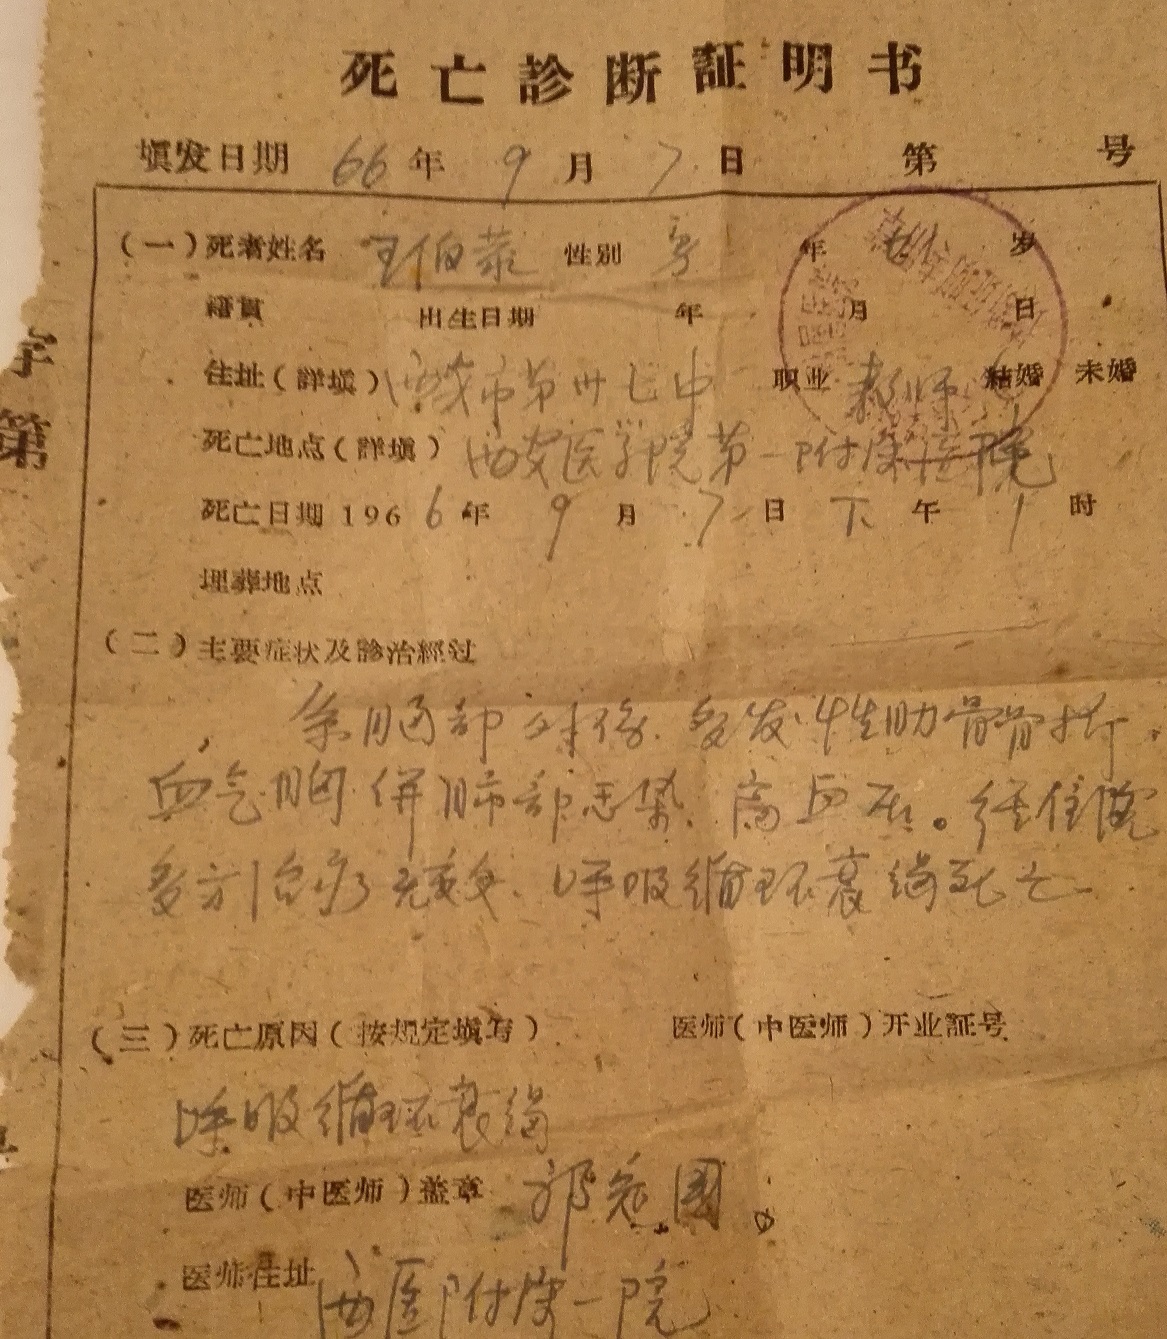 死亡診断証明书
填发日期 66 年 9 月 7 日 第 号
(一)死者姓名 王伯恭 性别 男 年 岁
籍貫 出生日期 年 月 日
住址(詳填)西安市第卅七中 职业 教师 結婚 未婚
死亡地点(詳填)西安医学院第一附属医院
死亡日期 1966 年 9 月 7 日 下 午 1 时
字
第
埋葬地点
(二)主要症状及診治經过
系胸部 多发性肋骨骨折
血气胸併肺部感染、高血压。经住院
多方治疗无效、呼吸循环衰竭死亡
(三)死亡原因(按規定填写) 医师(中医师)开业証号
呼吸循环衰竭
医师(中医师)盖章 郭 国
医师住址 西医附属一院